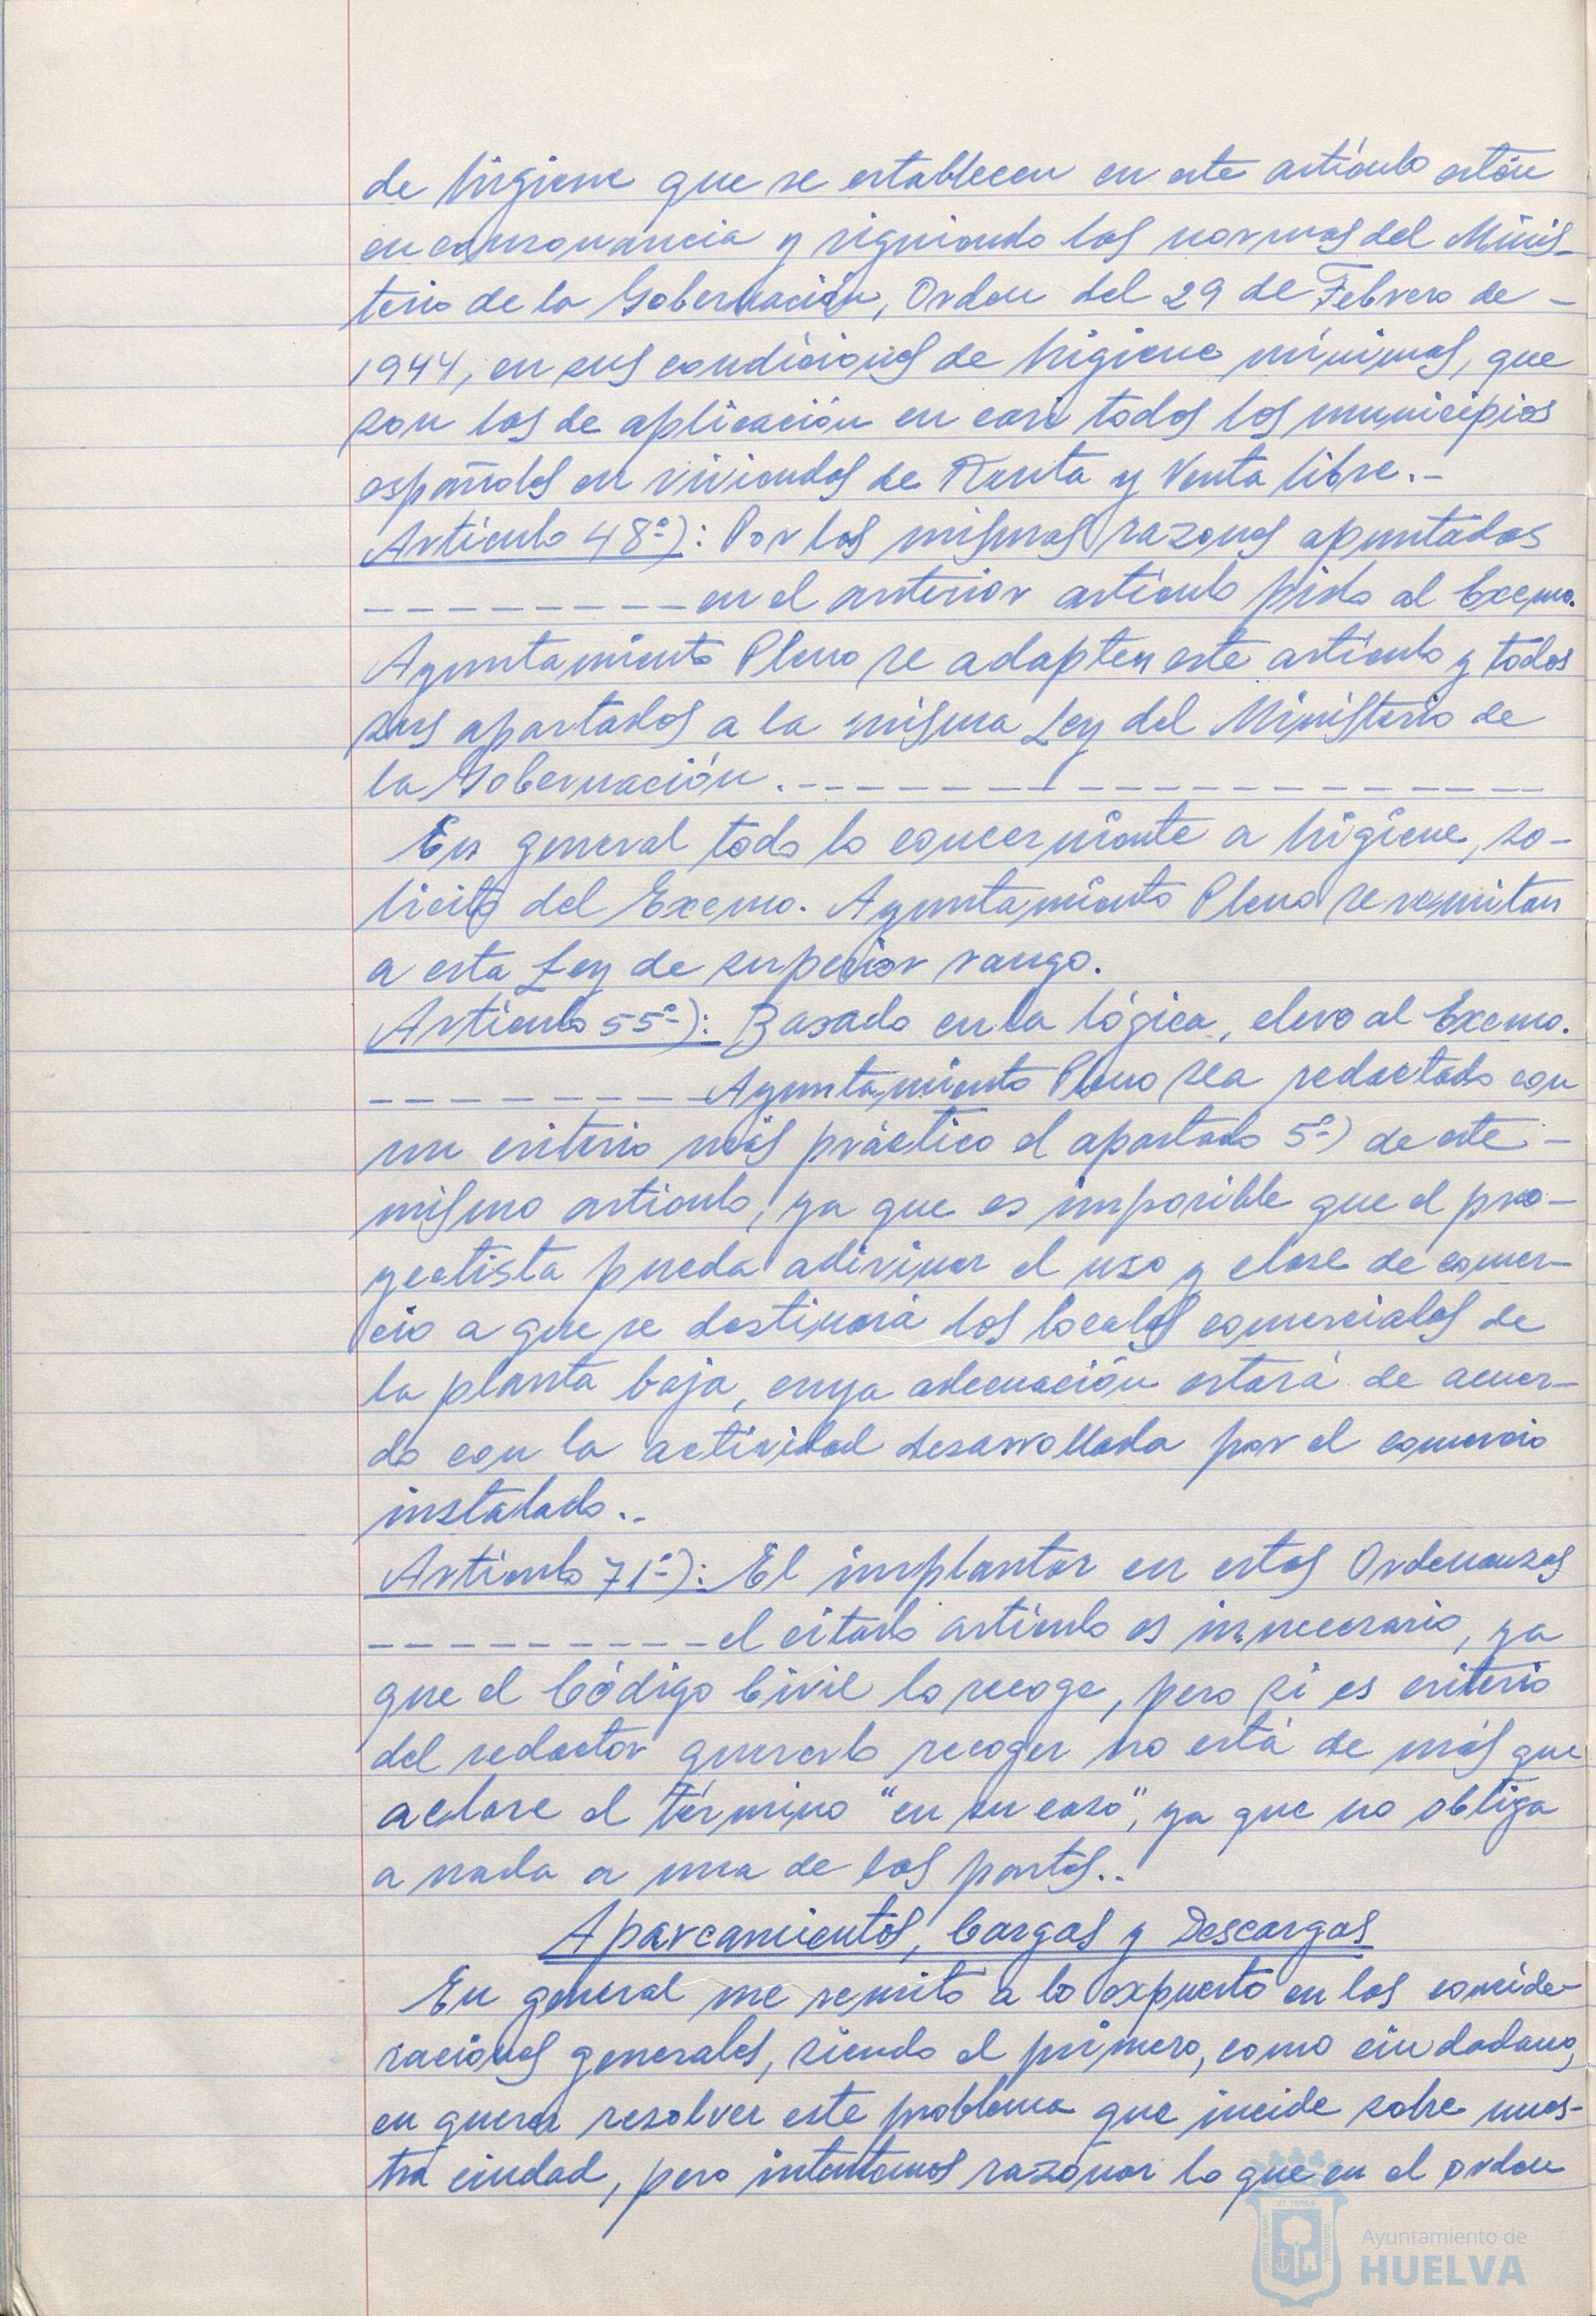 de higiene que se establecen en este artículo estén
en consonancia y siguiendo las normas del Minis-
terio de la Gobernación, Orden del 29 de Febrero de -
1944, en sus condiciones de higiene mínimas, que
son las de aplicación en casi todos los municipios
españoles en viviendas de Renta y Venta libre.-
Artículo 48º): Por las mismas razones apuntadas
--------- en el anterior artículo pido al Excmo.
Ayuntamiento Pleno se adapten este artículo y todos
sus apartados a la misma Ley del Ministerio de
la Gobernación.--------------------
En general todo lo concerniente a higiene, so-
licito del Excmo. Ayuntamiento Pleno se remitan
a esta Ley de superior rango.
Artículo 55º): Basado en la lógica, elevo al Excmo.
--------- Ayuntamiento Pleno sea redactado con
un criterio más práctico el apartado 5º) de este -
mismo artículo, ya que es imposible que el pro-
yectista pueda adivinar el uso y clase de comer-
cio a que se destinará los locales comerciales de
la planta baja, cuya adecuación estará de acuer-
do con la actividad desarrollada por el comercio
instalado..
Artículo 71º): El implantar en estas Ordenanzas
--------- el citado artículo es innecesario, ya
que el Código Civil lo recoge, pero si es criterio
del redactor quererlo recoger no está de más que
aclare el término "en su caso", ya que no obliga
a nada a una de las partes..
Aparcamientos, Cargas y Descargas
En general me remito a lo expuesto en las conside-
raciones generales, siendo el primero, como ciudadano,
en querer resolver este problema que incide sobre nues-
tra ciudad, pero intentamos razonar lo que en el orden
Ayuntamiento de
HUELVA